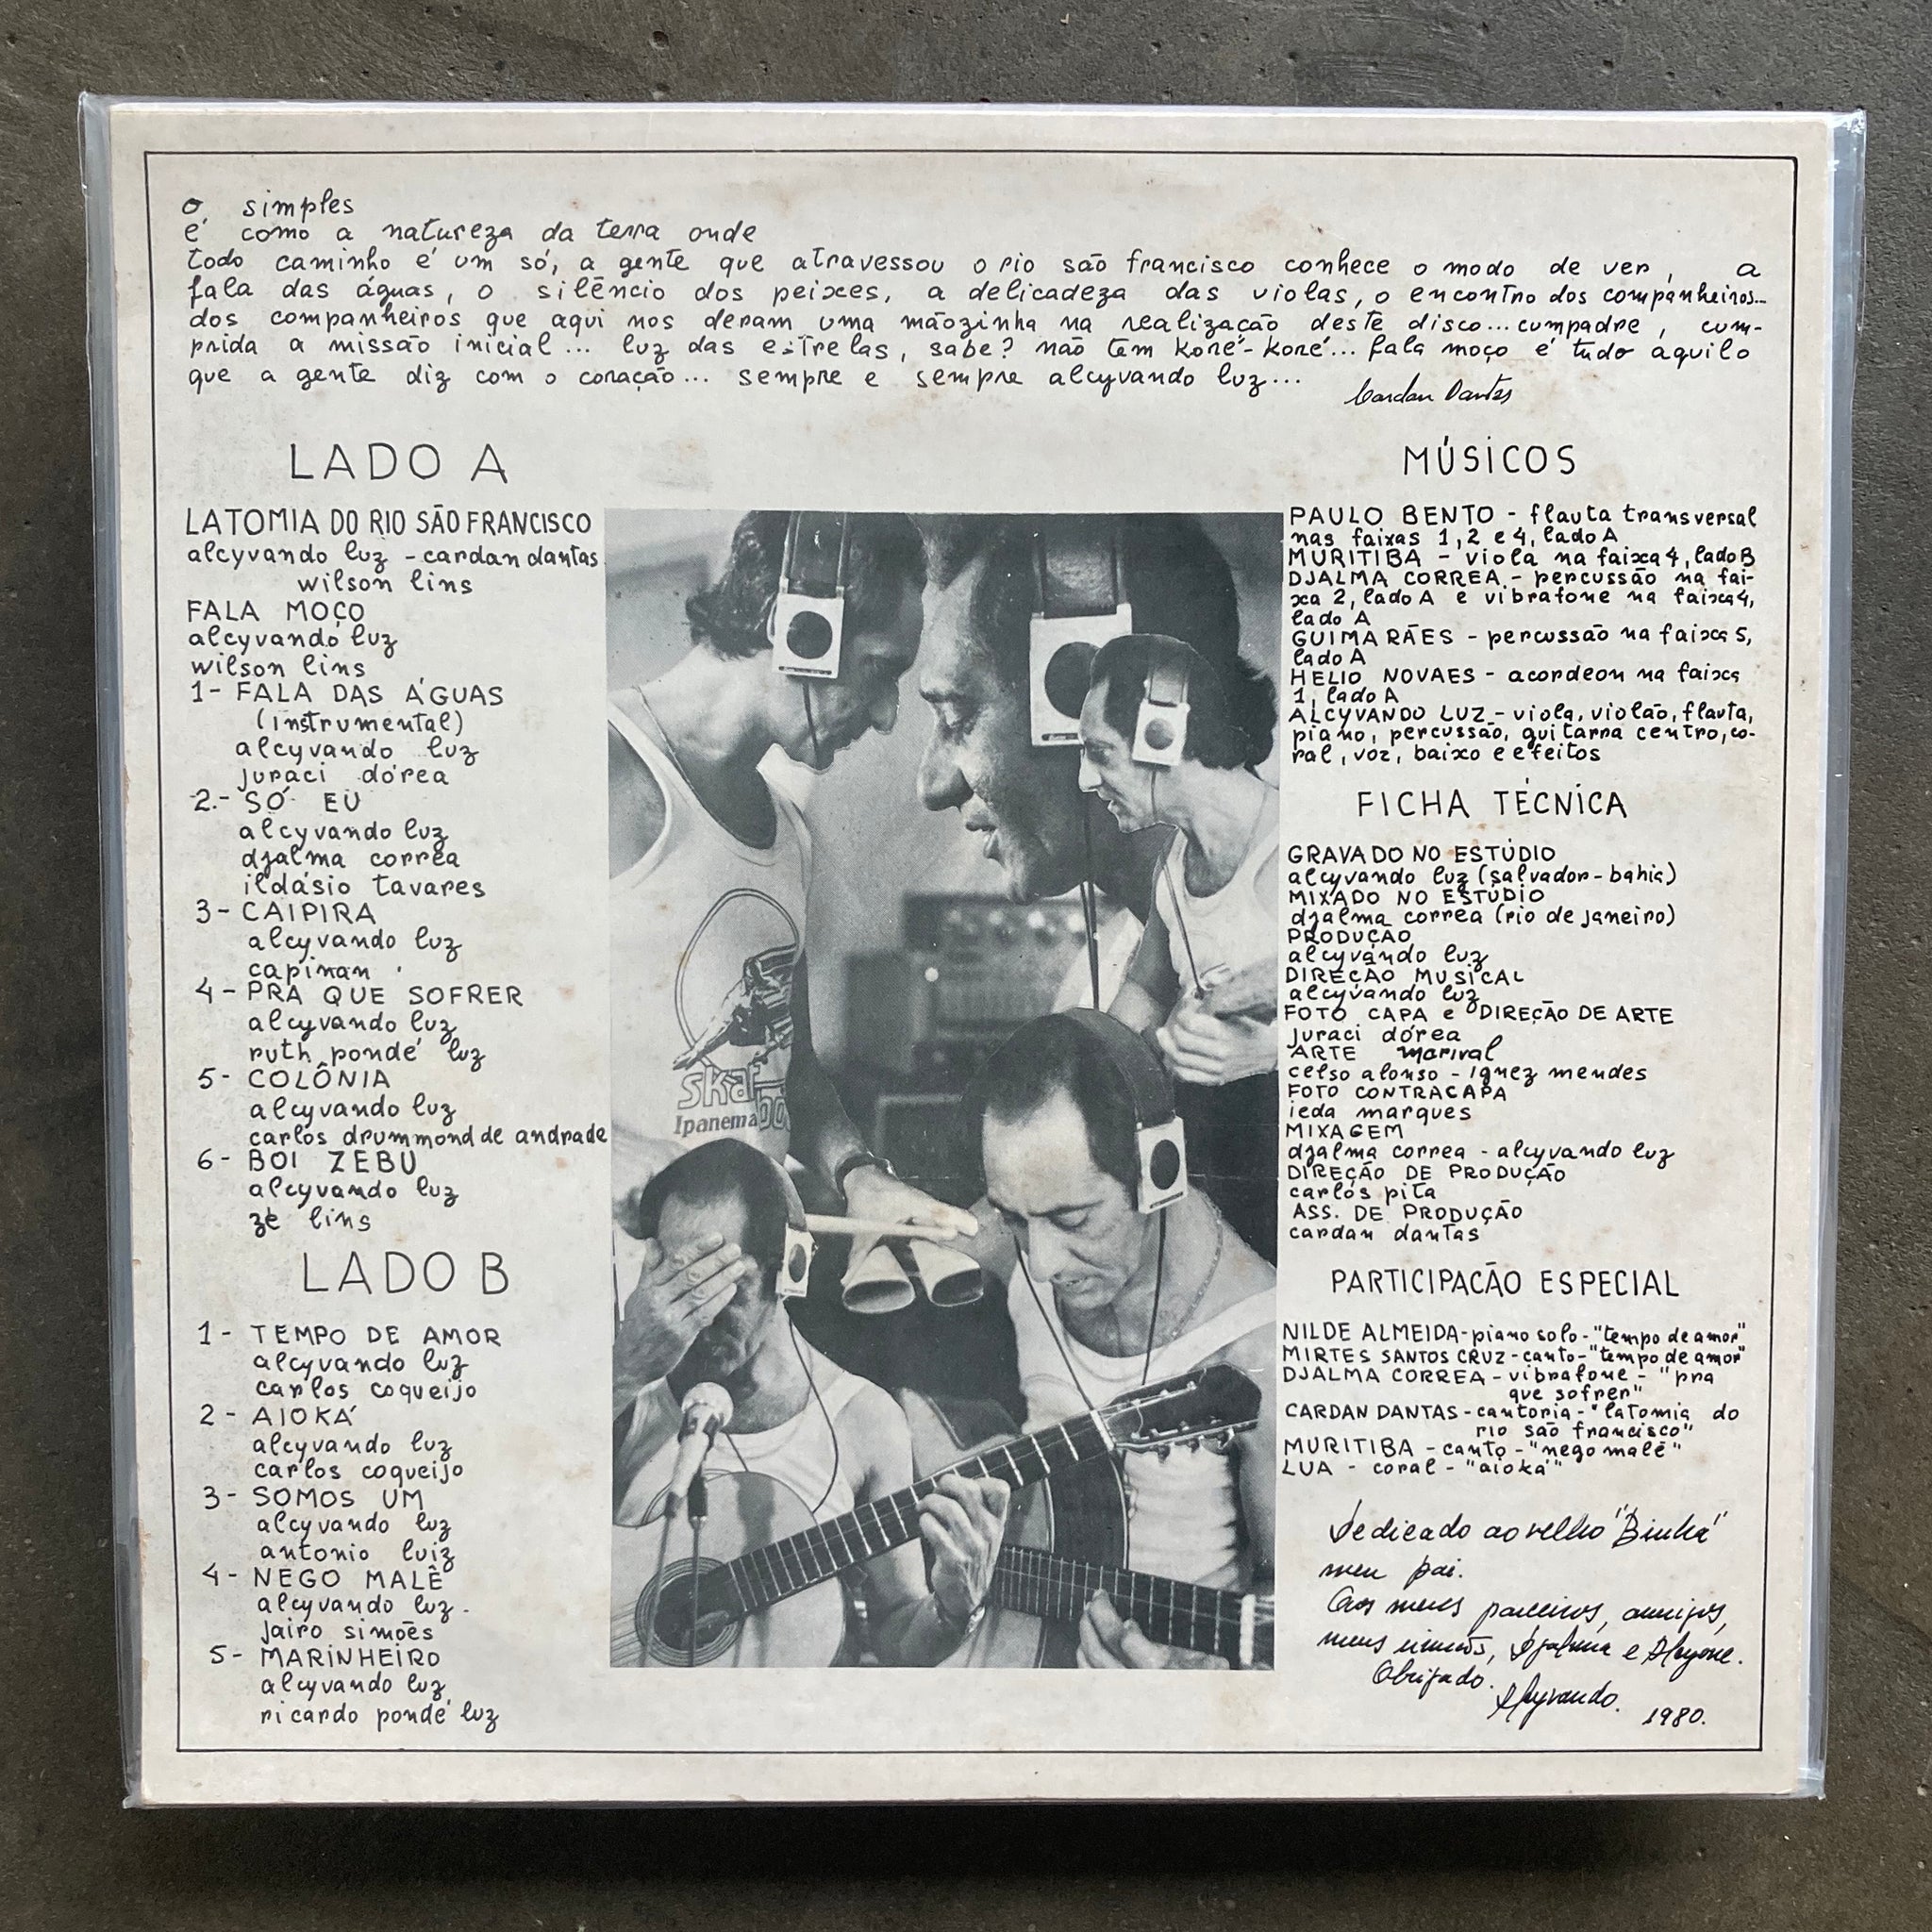 o simples
é como a natureza da terra onde
todo caminho é um só, a gente que atravessou o rio são francisco conhece o modo de ver, a
fala das águas, o silêncio dos peixes, a delicadeza das violas, o encontro dos companheiros...
dos companheiros que aqui nos deram uma mãozinha na realização deste disco... cumpadre, cum-
prida a missão inicial... luz das estrelas, sabe? não tem koré-koré... fala moço é tudo áquilo
que a gente diz com o coração... sempre e sempre alcyvando luz...
Cardan Dantas
LADO A
LATOMIA DO RIO SÃO FRANCISCO
alcyvando luz - cardan dantas
wilson lins
FALA MOÇO
alcyvando luz
wilson lins
1- FALA DAS ÁGUAS
(instrumental)
alcyvando luz
juraci dórea
2.- SÓ EU
alcyvando luz
djalma corrêa
ildásio tavares
3- CAIPIRA
alcyvando luz
capinan
4- PRA QUE SOFRER
alcyvando luz
ruth pondé luz
5- COLÔNIA
alcyvando luz
carlos drummond de andrade
6- BOI ZEBU
alcyvando luz
zé lins
LADO B
1- TEMPO DE AMOR
alcyvando luz
carlos coqueijo
2- AIOKÁ
alcyvando luz
carlos coqueijo
3- SOMOS UM
alcyvando luz
antonio luiz
4- NEGO MALÊ
alcyvando luz.
jairo simões
5- MARINHEIRO
alcyvando luz
ricardo pondé luz
skat
bo
Ipanema
MÚSICOS
PAULO BENTO - flauta transversal
nas faixas 1, 2 e 4, lado A
MURITIBA - viola na faixa 4, lado B
DJALMA CORREA - percussão na fai-
xa 2, lado A e vibrafone na faixa 4,
lado A
GUIMARÃES - percussão na faixa 5,
lado A
HELIO NOVAES - acordeon na faixa
1, lado A
ALCYVANDO LUZ - viola, violão, flauta,
piano, percussão, guitarra centro, co-
ral, voz, baixo e efeitos
FICHA TÉCNICA
GRAVADO NO ESTÚDIO
alcyvando luz (salvador - bahia)
MIXADO NO ESTÚDIO
djalma correa (rio de janeiro)
PRODUÇÃO
alcyvando luz
DIREÇÃO MUSICAL
alcyvando luz
FOTO CAPA e DIREÇÃO DE ARTE
juraci dórea
ARTE marival
celso alonso - ignez mendes
FOTO CONTRACAPA
ieda marques
MIXAGEM
djalma correa - alcyvando luz
DIREÇÃO DE PRODUÇÃO
carlos pita
ASS. DE PRODUÇÃO
cardan dantas
PARTICIPAÇÃO ESPECIAL
NILDE ALMEIDA - piano solo - "tempo de amor"
MIRTES SANTOS CRUZ - canto - "tempo de amor"
DJALMA CORREA - vibrafone - "pra
que sofrer"
CARDAN DANTAS - cantoria - "latomia do
rio são francisco"
MURITIBA - canto - "nego malê"
LUA - coral - "aioká"
Dedicado ao velho "Binha"
meu pai.
Aos meus parceiros, amigos,
meus irmãos, Djalma e Alcyone.
Obrigado.
Alcyvando.
1980.